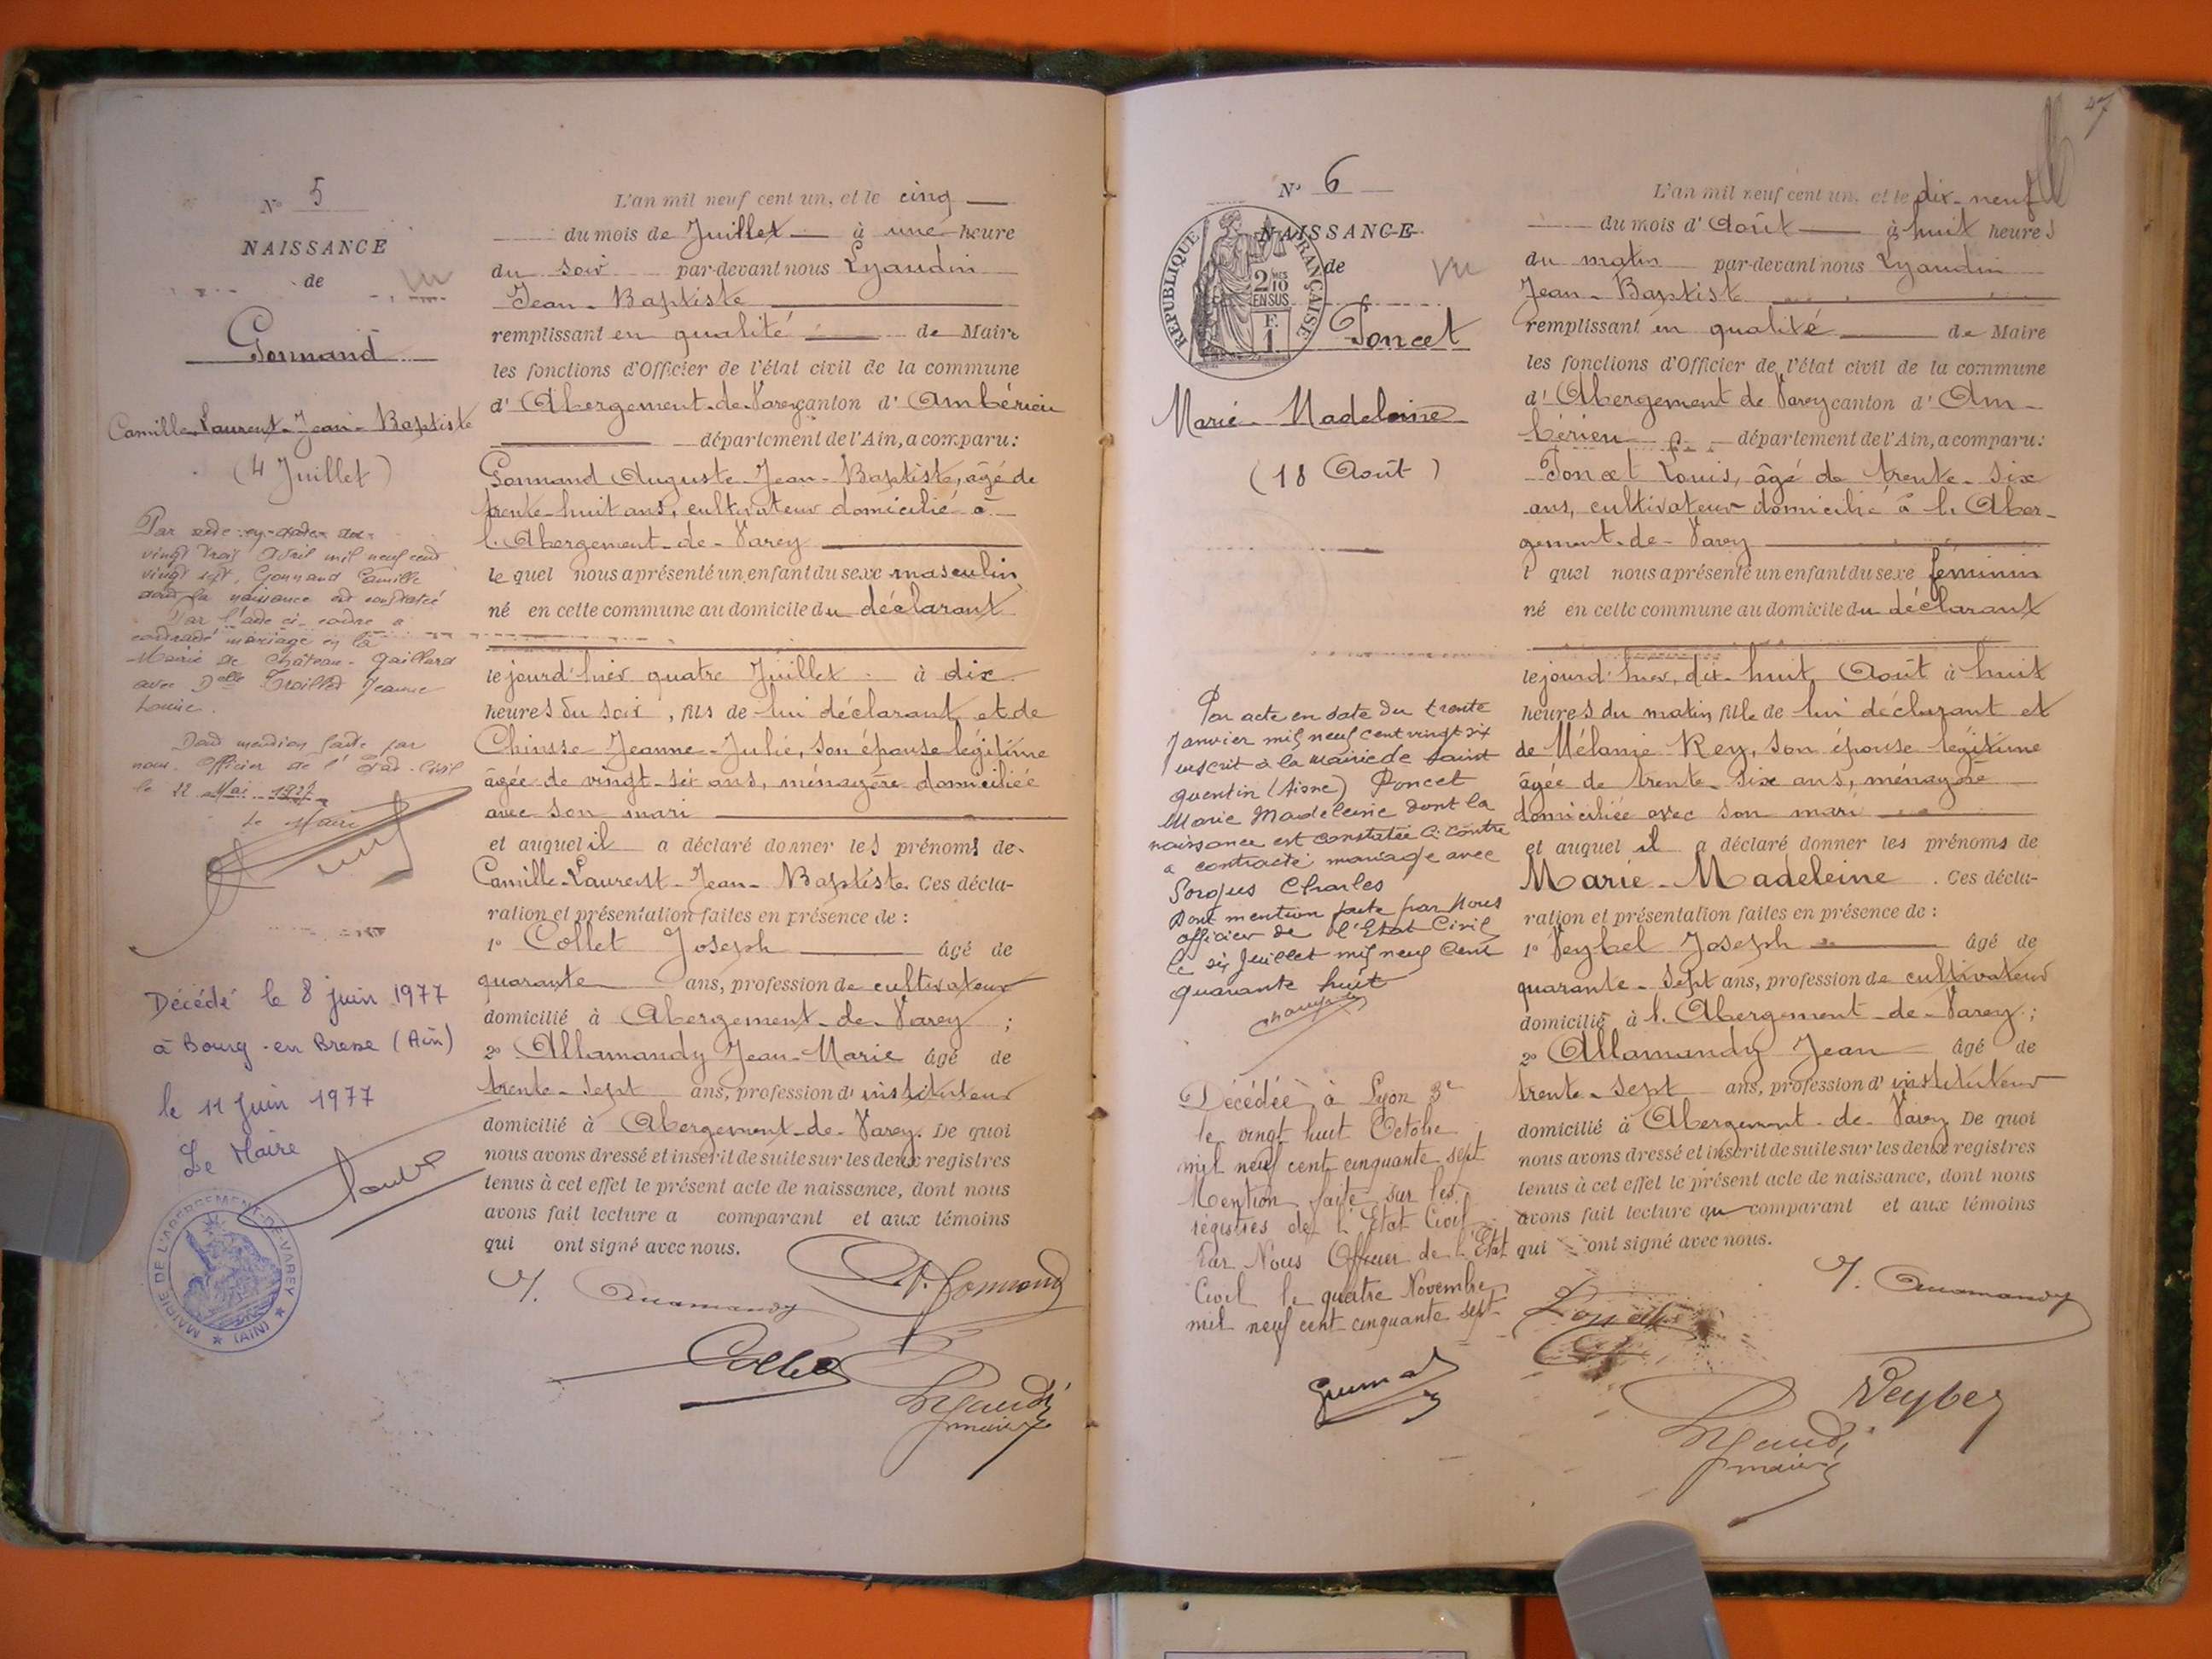 N° 5
NAISSANCE
de
vu
Gonnand
Camille-Laurent-Jean-Baptiste
(4 Juillet)
Par acte en date du
vingt trois avril mil neuf cent
vingt sept, Gonnand Camille
dont la naissance est constatée
par l'acte ci-contre a
contracté mariage en la
Mairie de Château-Gaillard
avec Delle Jeanne
Louise.
Dont mention faite par
nous Officier de l'Etat-Civil
le 22 Mai 1927
Le Maire
Décédé le 8 juin 1977
à Bourg-en Bresse (Ain)
le 11 Juin 1977
Le Maire
MAIRIE DE L'ABERGEMENT-DE-VAREY
★ (AIN) ★
L'an mil neuf cent un, et le cinq
du mois de Juillet à une heure
du soir par-devant nous Lyaudin
Jean-Baptiste
remplissant en qualité de Maire
les fonctions d'Officier de l'état civil de la commune
d'Abergement-de-Varey canton d'Ambérieu
département de l'Ain, a comparu:
Gonnand Auguste-Jean-Baptiste, âgé de
trente-huit ans, cultivateur domicilié à
l'Abergement-de-Varey
lequel nous a présenté un enfant du sexe masculin
né en cette commune au domicile du déclarant
le jourd'hier quatre Juillet à dix
heures du soir, fils de lui déclarant et de
Jeanne-Julie, son épouse légitime
âgée de vingt-six ans, ménagère domiciliée
avec son mari
et auquel il a déclaré donner les prénoms de
Camille-Laurent-Jean-Baptiste. Ces décla-
ration et présentation faites en présence de :
1° Collet Joseph âgé de
quarante ans, profession de cultivateur
domicilié à Abergement-de-Varey ;
2° Allamandy Jean-Marie âgé de
trente-sept ans, profession d'instituteur
domicilié à Abergement-de-Varey. De quoi
nous avons dressé et inscrit de suite sur les deux registres
tenus à cet effet le présent acte de naissance, dont nous
avons fait lecture a comparant et aux témoins
qui ont signé avec nous.
J. Allamandy
A. Gonnand
Collet
Lyaudin
maire
47
N° 6
NAISSANCE
de
vu
REPUBLIQUE FRANÇAISE
2/10 MES
EN SUS
F.
1
Poncet
Marie-Madeleine
(18 Août)
Par acte en date du trente
Janvier mil neuf cent vingt six
inscrit à la mairie de Saint
Quentin (Aisne) Poncet
Marie Madeleine dont la
naissance est constatée ci-contre
a contracté mariage avec
Charles
Dont mention faite par nous
officier de l'Etat Civil
le six Juillet mil neuf cent
quarante huit
Décédée à Lyon 3e
le vingt huit Octobre
mil neuf cent cinquante sept
Mention faite sur les
registres de l'Etat Civil
Par Nous Officier de l'Etat
Civil le quatre Novembre
mil neuf cent cinquante sept
L'an mil neuf cent un, et le dix-neuf
du mois d'Août à huit heures
du matin par-devant nous Lyaudin
Jean-Baptiste
remplissant en qualité de Maire
les fonctions d'Officier de l'état civil de la commune
d'Abergement de Varey canton d'Am-
bérieu département de l'Ain, a comparu:
Poncet Louis, âgé de trente-six
ans, cultivateur domicilié à l'Aber-
gement-de-Varey
lequel nous a présenté un enfant du sexe féminin
né en cette commune au domicile du déclarant
le jourd'hier, dix-huit Août à huit
heures du matin fille de lui déclarant et
de Mélanie Rey, son épouse légitime
âgée de trente-six ans, ménagère
domiciliée avec son mari
et auquel il a déclaré donner les prénoms de
Marie-Madeleine. Ces décla-
ration et présentation faites en présence de :
1° Veybel Joseph âgé de
quarante-sept ans, profession de cultivateur
domicilié à l'Abergement-de-Varey ;
2° Allamandy Jean âgé de
trente-sept ans, profession d'instituteur
domicilié à Abergement-de-Varey. De quoi
nous avons dressé et inscrit de suite sur les deux registres
tenus à cet effet le présent acte de naissance, dont nous
avons fait lecture au comparant et aux témoins
qui ont signé avec nous.
J. Allamandy
Poncet
Veybel
Lyaudin
maire